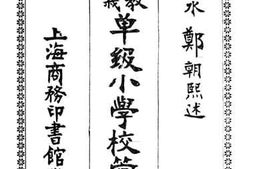 水 鄭朝熙述
教
单级小學校管
上海商務印書館